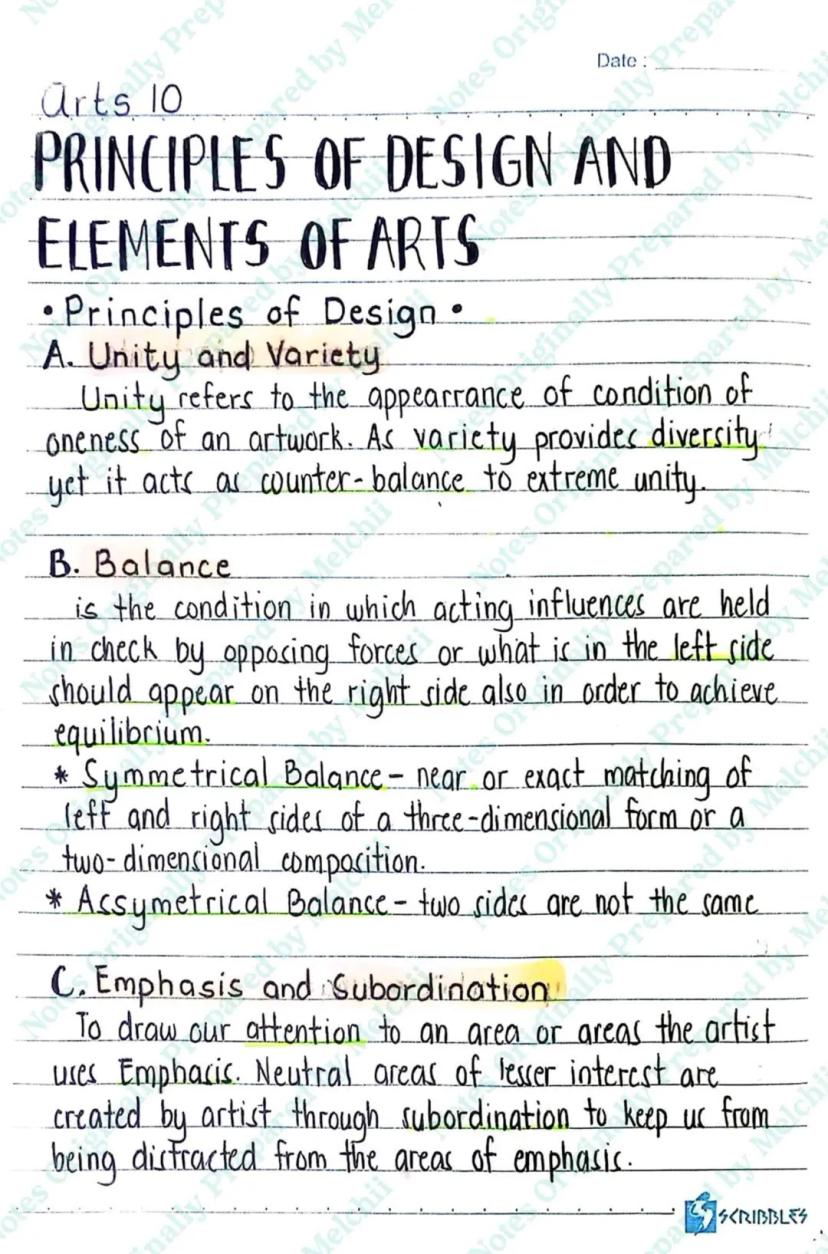 Date :
Arts 10
PRINCIPLES OF DESIGN AND
ELEMENTS OF ARTS
• Principles of Design •
A. Unity and Variety
Unity refers to the appearrance of condition of
oneness of an artwork. As variety provides diversity
yet it acts as counter-balance to extreme unity.
B. Balance
is the condition in which acting influences are held
in check by opposing forces or what is in the left side
should appear on the right side also in order to achieve
equilibrium.
* Symmetrical Balance - near or exact matching of
left and right sides of a three-dimensional form or a
two-dimensional composition.
* Assymetrical Balance - two sides are not the same
C. Emphasis and Subordination
To draw our attention to an area or areas the artist
uses Emphasis. Neutral areas of lesser interest are
created by artist through subordination to keep us from
being distracted from the areas of emphasis.
SCRIBBLES
Notes Originally Prepared by Melchii